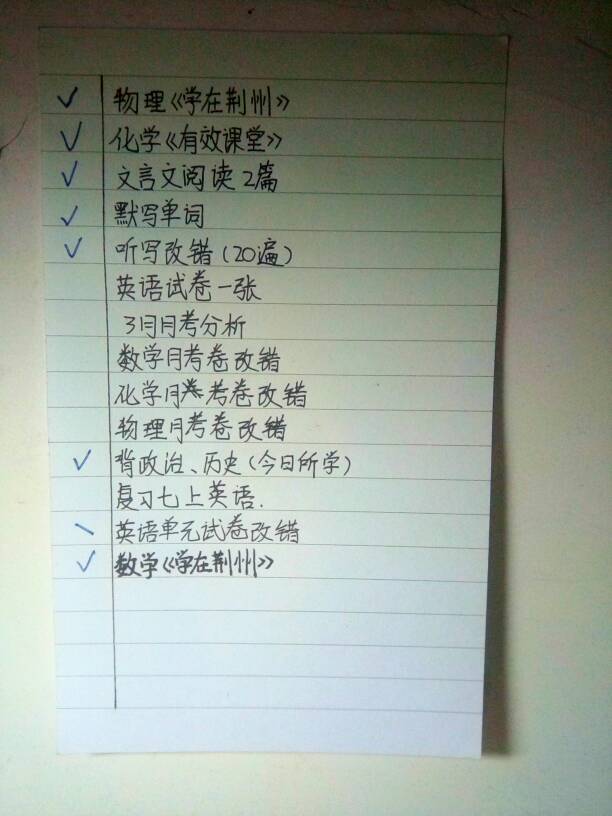 ✓ 物理《学在荆州》
✓ 化学《有效课堂》
✓ 文言文阅读2篇
✓ 默写单词
✓ 听写改错(20遍)
英语试卷一张
3月月考分析
数学月考卷改错
化学月考卷改错
物理月考卷改错
✓ 背政治、历史(今日所学)
复习七上英语.
\ 英语单元试卷改错
✓ 数学《学在荆州》